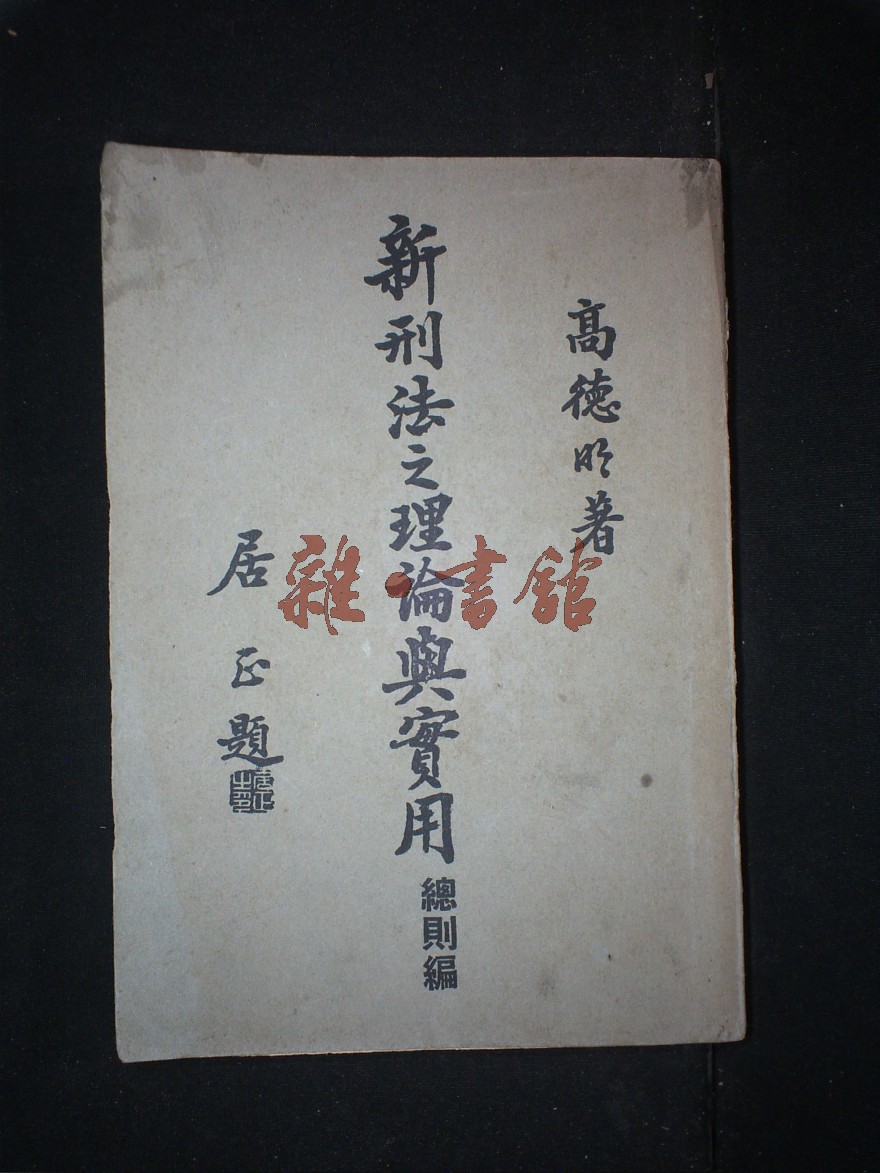 高德明著
新刑法之理論與實用
總則編
居正題
雜·書館